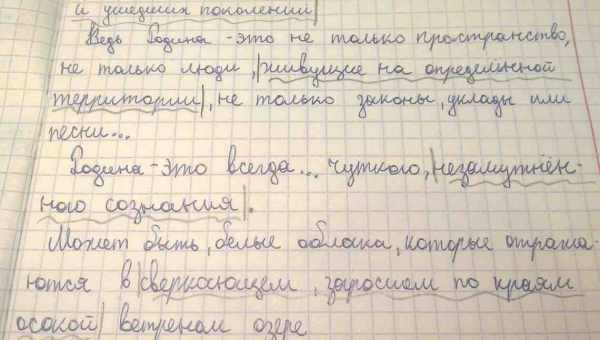 и ушедших поколений|
Ведь Родина - это не только пространство,
не только люди, |живущие на определённой
территории|, не только законы, уклады или
песни...
Родина - это всегда... чуткого, |незамутнён-
ного сознания|.
Может быть, белые облака, которые отража-
ются в |сверкающем, заросшем по краям
осокой| ветреном озере